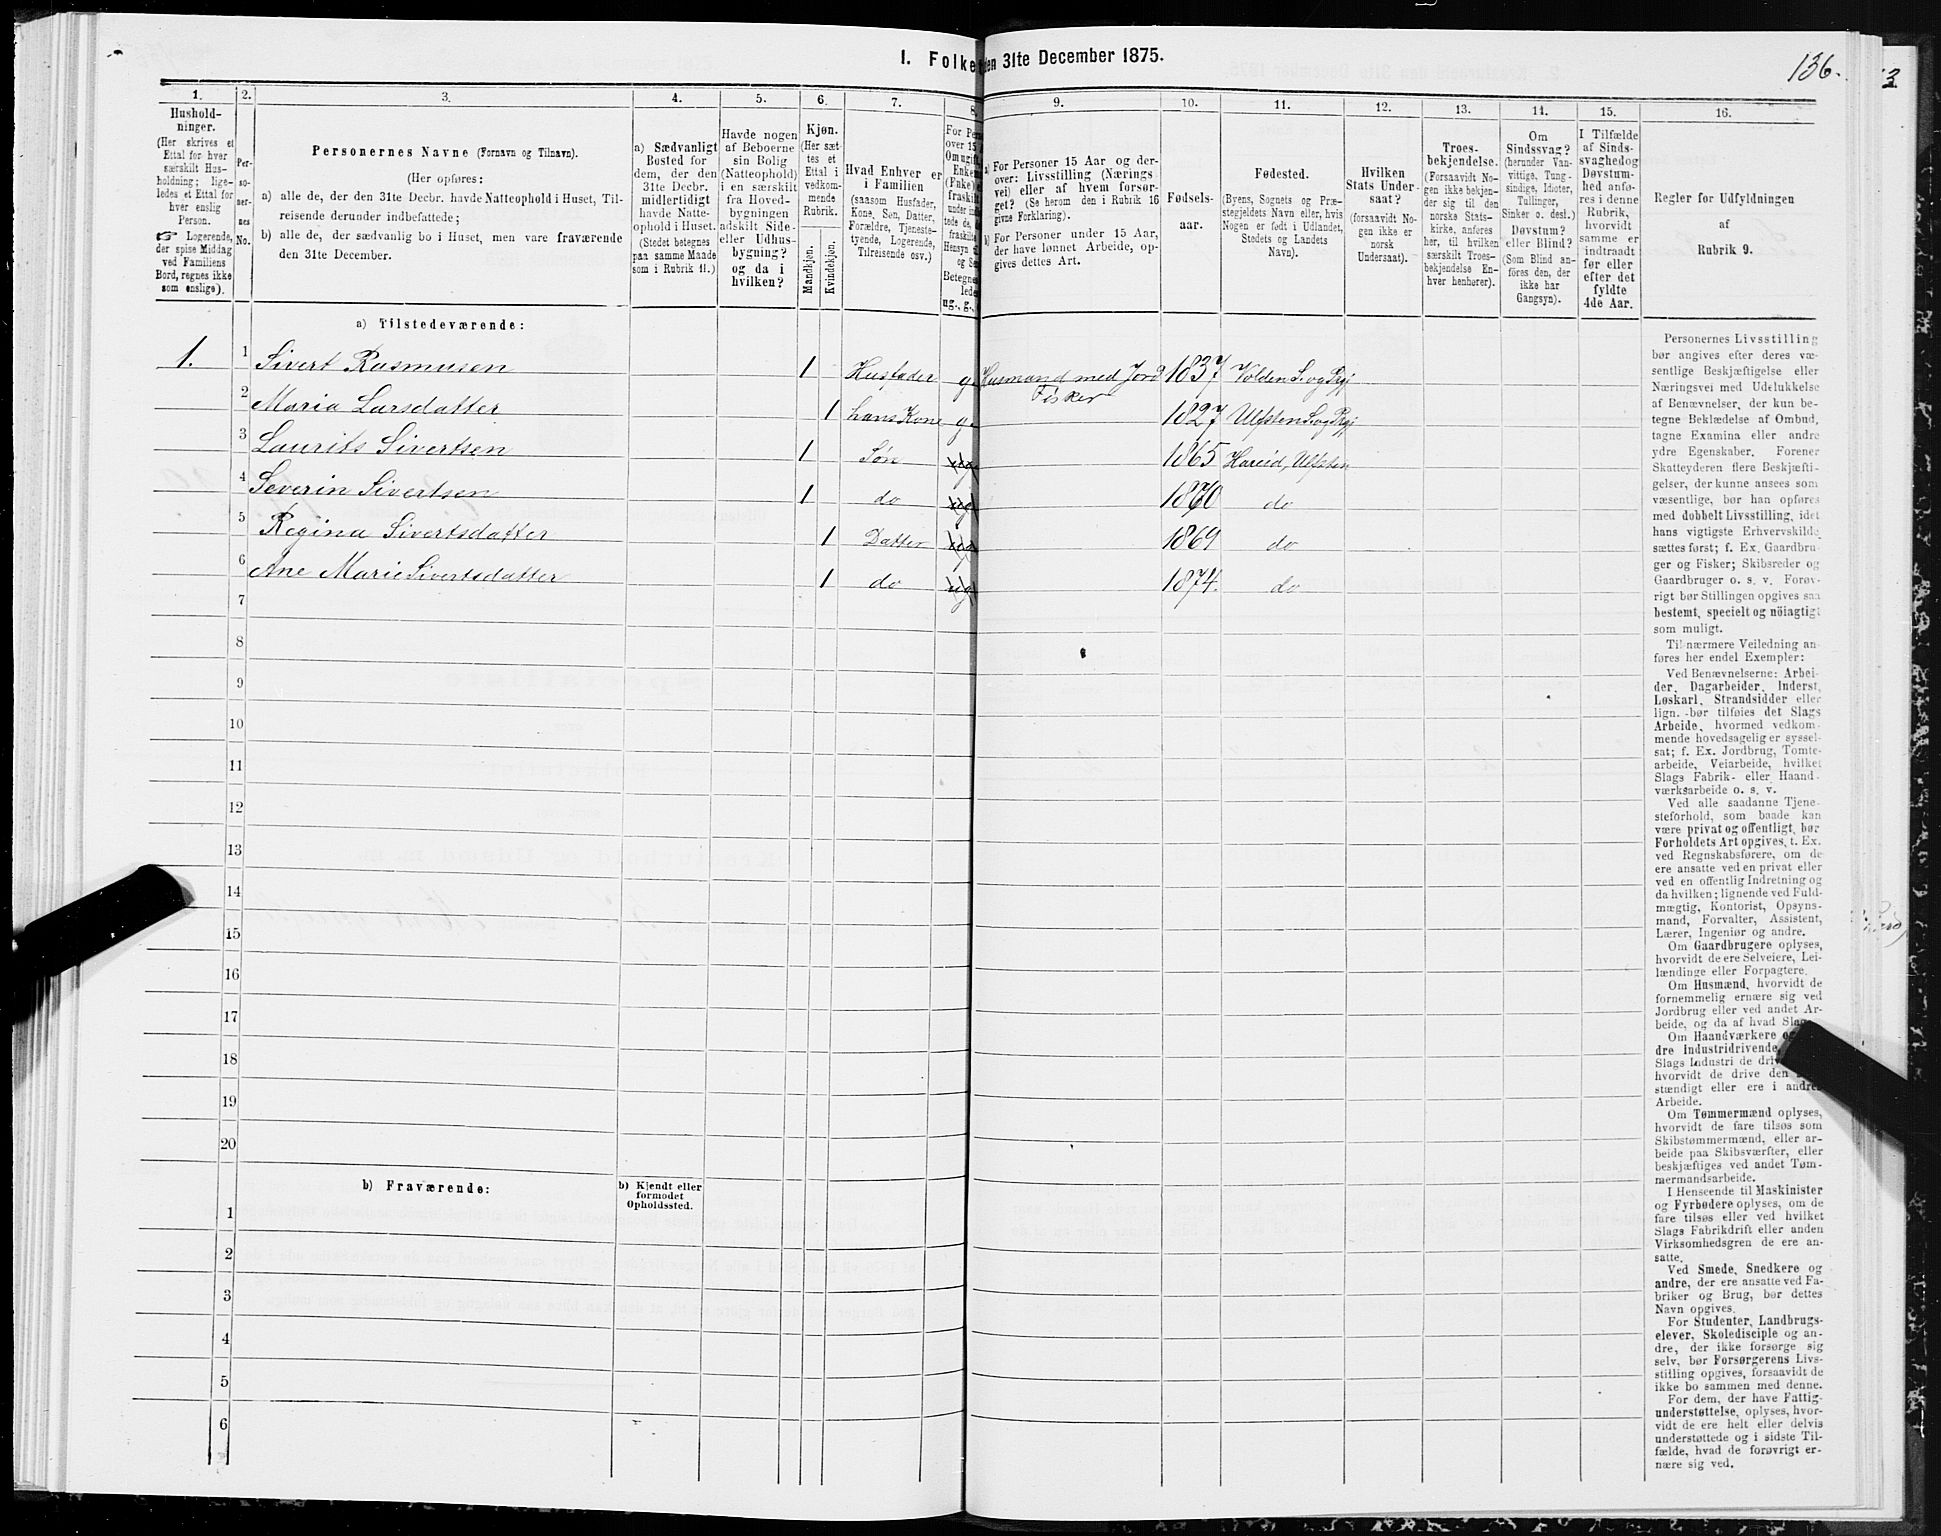 I. Folke en 31te December 1875.
136.
1.
2.
3.
4.
5.
6.
7.
8.
9.
10.
11.
12.
13.
14.
15.
16.
Hushold-
ninger.
(Her skrives et
Ettal for hver
særskilt Hus-
holdning; lige-
ledes et Ettal for
hver enslig
Person.
☞ Logerende,
der spise Middag
ved Familiens
Bord, regnes ikke
som enslige).
Per-
so-
ner-
nes
No.
Personernes Navne (Fornavn og Tilnavn).
(Her opføres:
a) alle de, der den 31te Decbr. havde Natteophold i Huset, Til-
reisende derunder indbefattede;
b) alle de, der sædvanlig bo i Huset, men vare fraværende
den 31te December.
a) Sædvanligt
Bosted for
dem, der den
31te Decbr.
midlertidigt
havde Natte-
ophold i Huset.
(Stedet betegnes
paa samme Maade
som i Rubrik 11.)
Havde nogen
af Beboerne
sin Bolig
(Natteophold)
i en særskilt
fra Hoved-
bygningen
adskilt Side-
eller Udhus-
bygning?
og da i
hvilken?
Kjøn.
(Her sæt-
tes et
Ettal i
vedkom-
mende
Rubrik.
Mandkjøn.
Kvindekjøn.
Hvad Enhver er
i Familien
(saasom Husfader,
Kone, Søn, Datter,
Forældre, Tjeneste-
tyende, Logerende,
Tilreisende osv.)
For Pers
over 15 A
Om ugift,
Enkem
(Enke) e
fraskilt
under indbe
tede de, de
fraskilte
Hensyn til
og Sen
Betegnes
lede
ug., g.,
a) For Personer 15 Aar og der-
over: Livsstilling (Nærings-
vei) eller af hvem forsør-
get? (Se herom den i Rubrik 16
givne Forklaring).
b) For Personer under 15 Aar,
der have lønnet Arbeide, op-
gives dettes Art.
Fødsels-
aar.
Fødested.
(Byens, Sognets og Præ-
stegjeldets Navn eller, hvis
Nogen er født i Udlandet,
Stedets og Landets
Navn).
Hvilken
Stats Under-
saat?
(forsaavidt No-
gen ikke er
norsk
Undersaat).
Troes-
bekjendelse.
(Forsaavidt No-
gen ikke bekjen-
der sig til den
norske Stats-
kirke, anføres
her, til hvilken
særskilt Troes-
bekjendelse En-
hver henhører).
Om
Sindssvag?
(herunder Van-
vittige, Tung-
sindige, Idioter,
Tullinger,
Sinker o. desl.)
Døvstum?
eller Blind?
(Som Blind an-
føres den, der
ikke har
Gangsyn).
I Tilfælde
af Sinds-
svaghed og
Døvstum-
hed anfø-
res i denne
Rubrik,
hvorvidt
samme er
indtraadt
før eller
efter det
fyldte
4de Aar.
Regler for Udfyldningen
af
Rubrik 9.
a) Tilstedeværende:
1. 1 Sivert Rasmusen 1 Husfader g. Husmand med Jord Fisker 1837 Volden S. og Prgj
2 Maria Larsdatter 1 hans Kone g. 1827 Ulfsten S. og Prgj
3 Laurits Sivertsen 1 Søn ug 1865 Hareid, Ulfsten
4 Severin Sivertsen 1 do ug 1870 do
5 Regina Sivertsdatter 1 Datter ug 1869 do
6 Ane Marie Sivertsdatter 1 do ug 1874. do
7
8
9
10
11
12
13
14
15
16
17
18
19
20
b) Fraværende:
b) Kjendt eller
formodet
Opholdssted.
1
2
3
4
5
6
Personernes Livsstilling
bør angives efter deres væ-
sentlige Beskjæftigelse eller
Næringsvei med Udelukkelse
af Benævnelser, der kun be-
tegne Beklædelse af Ombud,
tagne Examina eller andre
ydre Egenskaber. Forener
Skatteyderen flere Beskjæfti-
gelser, der kunne ansees som
væsentlige, bør han opføres
med dobbelt Livsstilling, idet
hans vigtigste Erhvervskilde
sættes først; f. Ex. Gaardbru-
ger og Fisker; Skibsreder og
Gaardbruger o. s. v. Forøv-
rigt bør Stillingen opgives saa
bestemt, specielt og nöiagtigt
som muligt.
Til nærmere Veiledning an-
føres her endel Exempler:
Ved Benævnelserne: Arbei-
der, Dagarbeider, Inderst,
Løskarl, Strandsidder eller
lign. bør tilføies det Slags
Arbeide, hvormed vedkom-
mende hovedsagelig er syssel-
sat; f. Ex. Jordbrug, Tomte-
arbeide, Veiarbeide, hvilket
Slags Fabrik- eller Haand-
værksarbeide o. s. v.
Ved alle saadanne Tjene-
steforhold, som baade kan
være privat og offentligt, bør
Forholdets Art opgives, t. Ex.
ved Regnskabsførere, om de
ere ansatte ved en privat eller
ved en offentlig Indretning og
da hvilken; lignende ved Fuld-
mægtig, Kontorist, Opsyns-
mand, Forvalter, Assistent,
Lærer, Ingeniør og andre.
Om Gaardbrugere oplyses,
hvorvidt de ere Selveiere, Lei-
lændinge eller Forpagtere.
Om Husmænd, hvorvidt de
fornemmelig ernære sig ved
Jordbrug eller ved andet Ar-
beide, og da af hvad Slags
Om Haandværkere og
dre Industridrivende,
Slags Industri de driv
hvorvidt de drive den
stændigt eller ere i andres
Arbeide.
Om Tømmermænd oplyses,
hvorvidt de fare tilsøs som
Skibstømmermænd, eller ar-
beide paa Skibsværfter, eller
beskjæftiges ved andet Tøm-
mermandsarbeide.
I Henseende til Maskinister
og Fyrbødere oplyses, om de
fare tilsøs eller ved hvilket
Slags Fabrikdrift eller anden
Virksomhedsgren de ere an-
satte.
Ved Smede, Snedkere og
andre, der ere ansatte ved Fa-
briker og Brug, bør dettes
Navn opgives.
For Studenter, Landbrugs-
elever, Skoledisciple og an-
dre, der ikke forsørge sig
selv, bør Forsørgerens Livs-
stilling opgives, forsaavidt de
ikke bo sammen med denne.
For dem, der have Fattig-
understøttelse, oplyses, hvor-
vidt de ere helt eller delvis
understøttede og i sidste Til-
fælde, hvad de forøvrigt er-
nære sig ved.